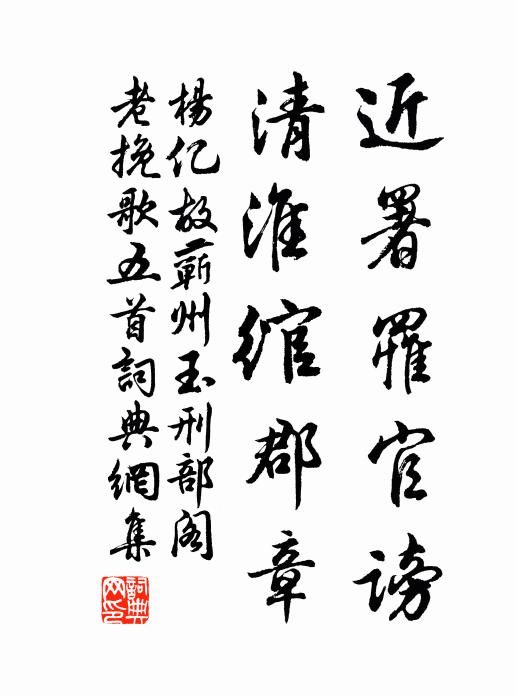 近署罹官謗
清淮綰郡章
楊亿故蘄州玉刑部阁
老挽歌五首詞典網集
詞典网印